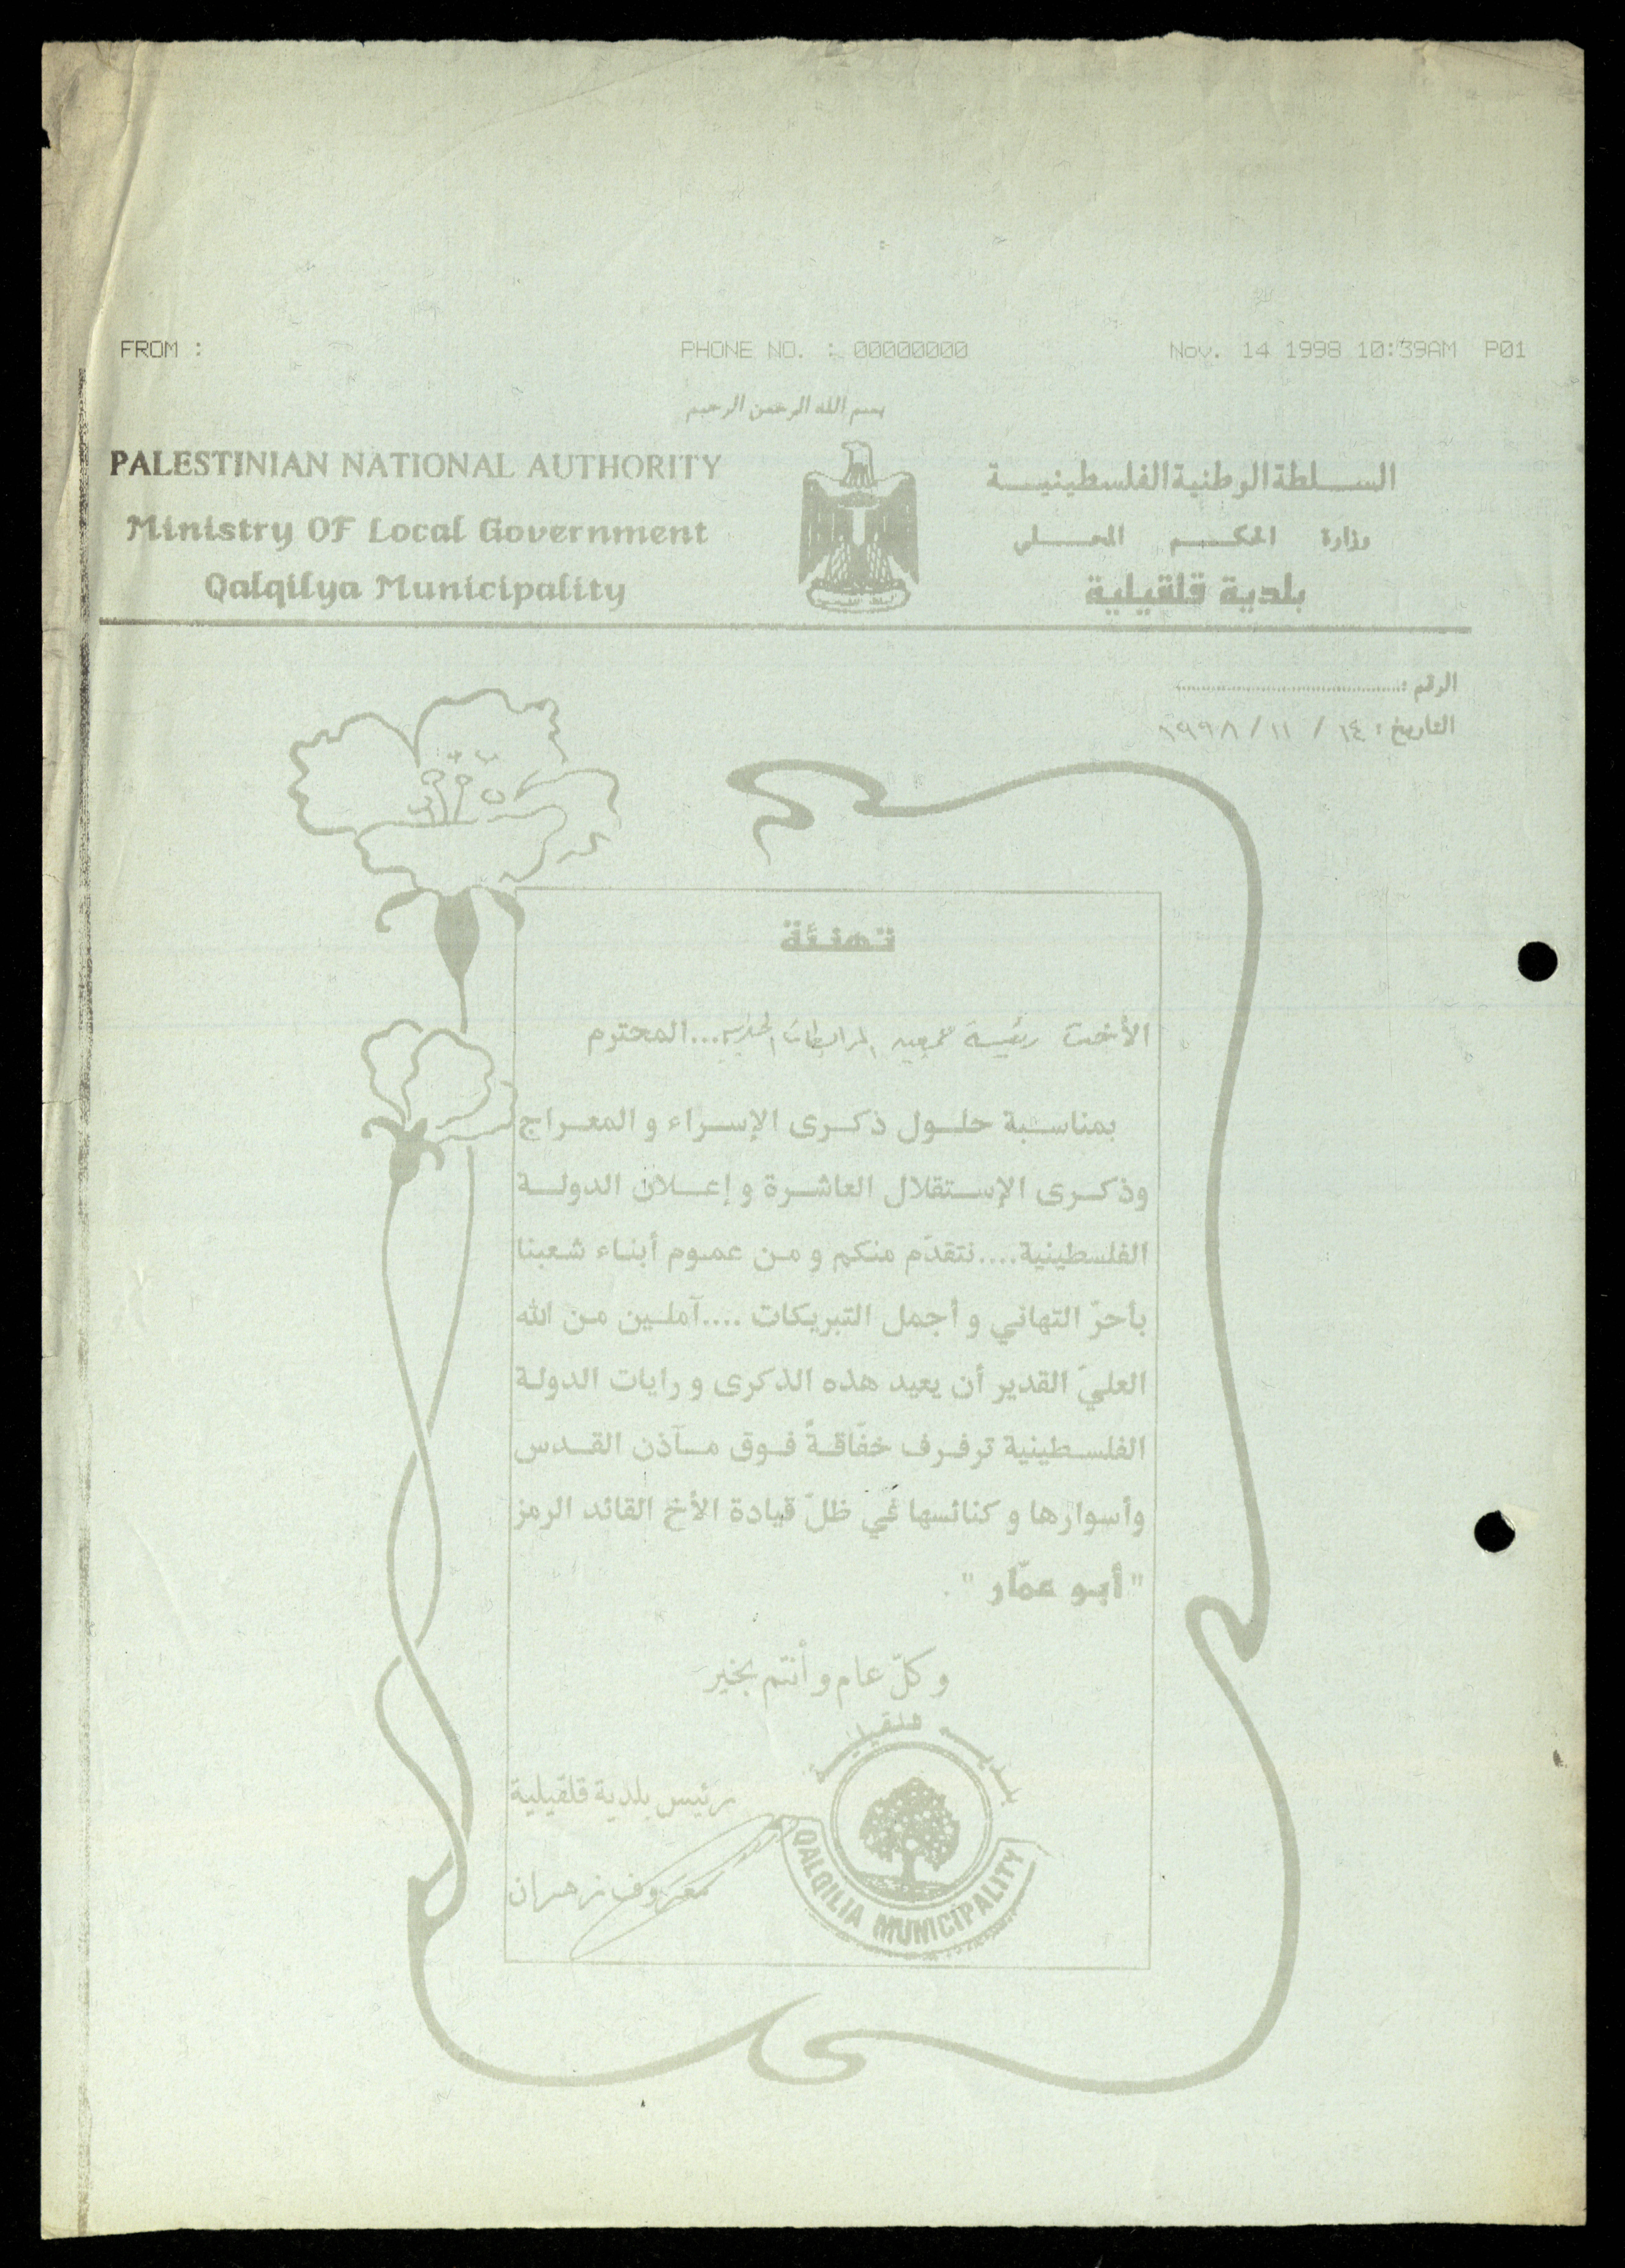 FROM : PHONE NO. : 00000000 Nov. 14 1998 10:39AM P01
بسم الله الرحمن الرحيم
PALESTINIAN NATIONAL AUTHORITY
Ministry OF Local Government
Qalqilya Municipality
السلطة الوطنية الفلسطينية
وزارة الحكم المحلي
بلدية قلقيلية
الرقم :
التاريخ : ١٤ / ١١ / ١٩٩٨
تهنئة
الأخت رئيسة جمعية المرابطات ...المحترم
بمناسبة حلول ذكرى الإسراء و المعراج
وذكرى الإستقلال العاشرة و إعلان الدولة
الفلسطينية....نتقدّم منكم و من عموم أبناء شعبنا
بأحرّ التهاني و أجمل التبريكات ....آملين من الله
العليّ القدير أن يعيد هذه الذكرى و رايات الدولة
الفلسطينية ترفرف خفّاقةً فوق مآذن القدس
وأسوارها و كنائسها في ظلّ قيادة الأخ القائد الرمز
" أبو عمّار " .
و كلّ عام و أنتم بخير
بلدية قلقيلية
QALQILIA MUNICIPALITY
رئيس بلدية قلقيلية
معروف زهران